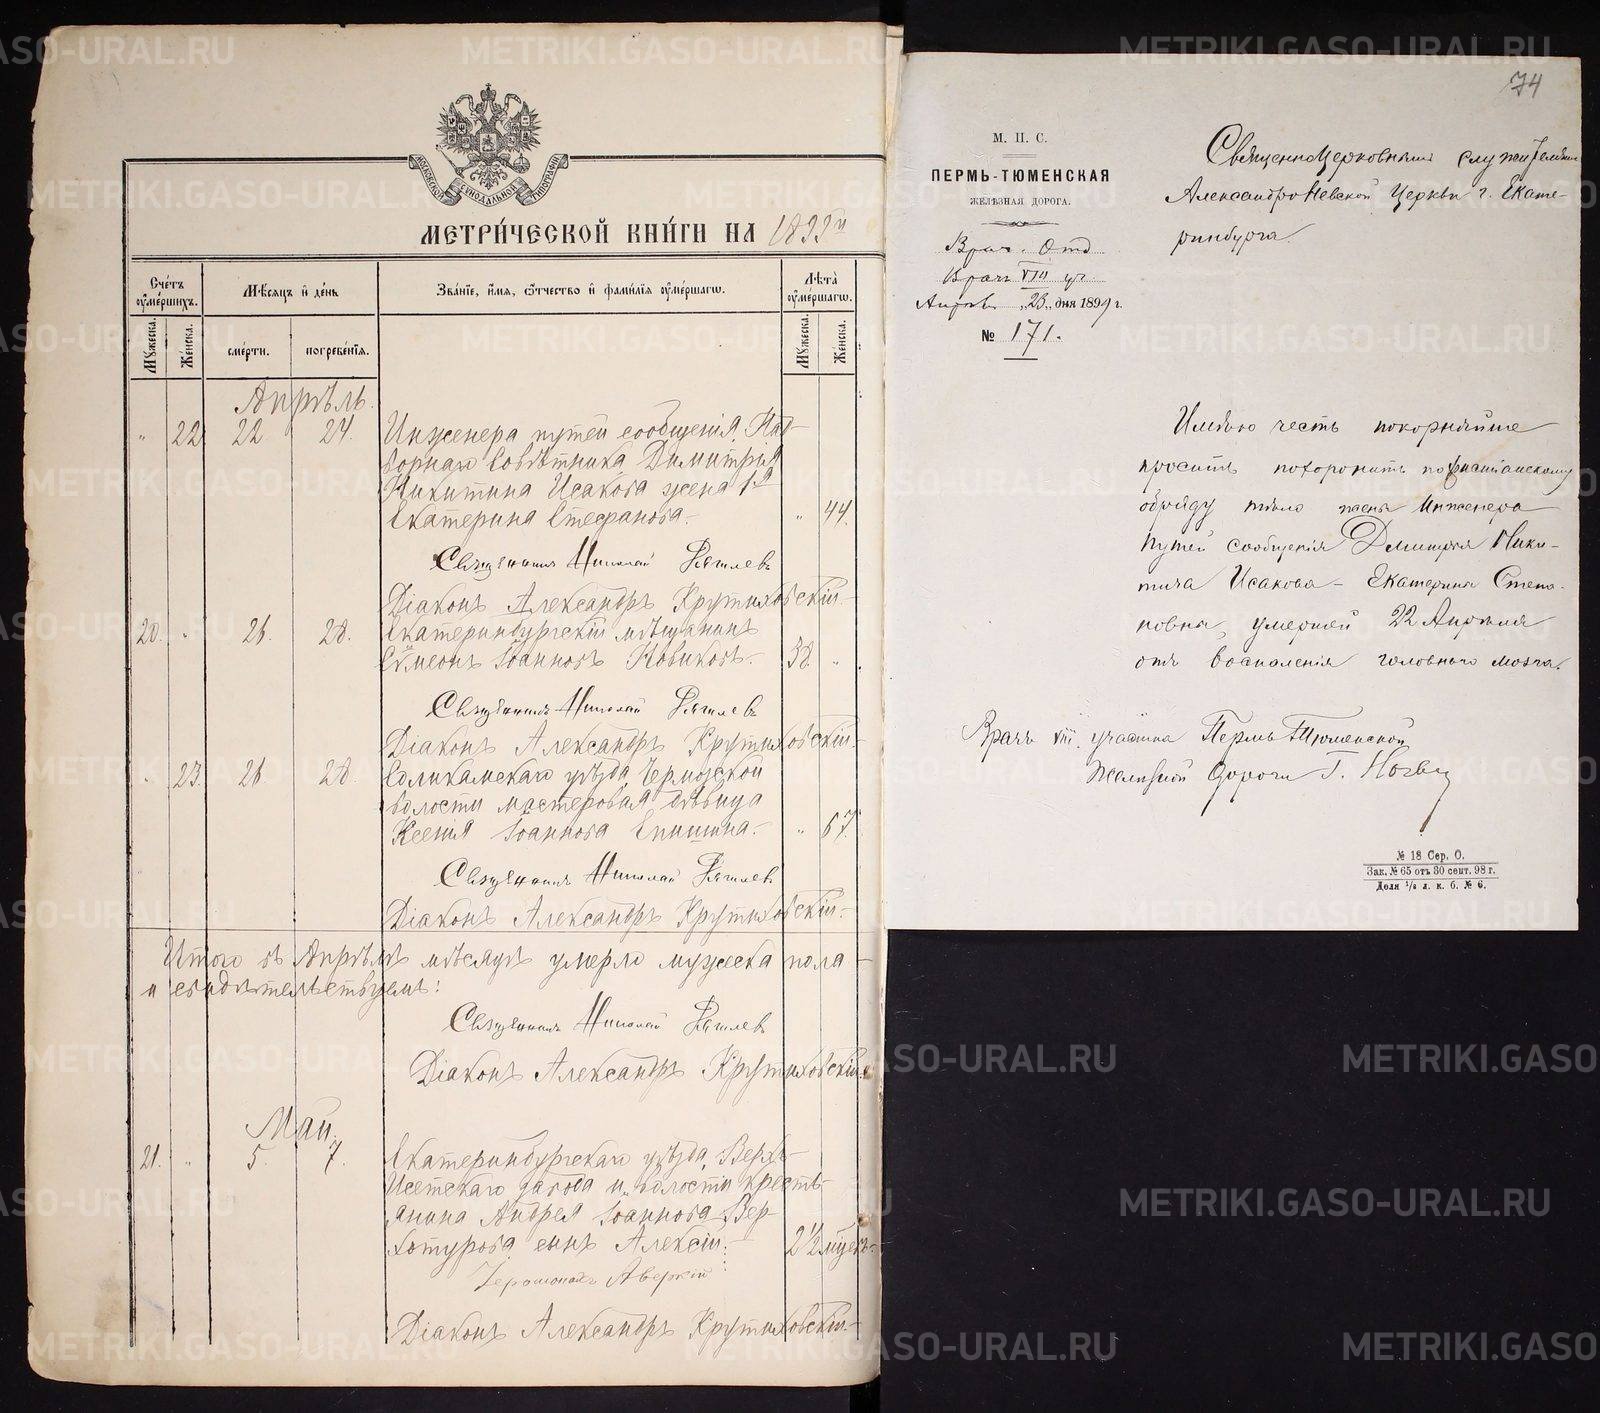 МОСКОВСКОЙ СѴНОДАЛЬНОЙ ТИПОГРАФІИ
МЕТРИ́ЧЕСКОЙ КНИ́ГИ НА 1899 й
Сче́тъ ѹ҆ме́ршихъ.
Мѣ́сяцъ и҆ де́нь
Зва́нїе, и҆́мя, ѻ҆́тчество и҆ фами́лїя ѹ҆ме́ршагѡ.
Лѣ́та ѹ҆ме́ршагѡ.
Мꙋ́жеска.
Же́нска.
сме́рти.
погребе́нїя.
Мꙋ́жеска.
Же́нска.
Апрѣль.
" 22 22 24. Инженера путей сообщенія, Над-
ворнаго Совѣтника Димитрія
Никитина Исакова жена 1я
Екатерина Стефанова. " 44.
Священникъ Николай
Діаконъ Александръ Крутиховскій.
20. " 26. 28. Екатеринбургскій мѣщанинъ
Сѵмеонъ Іоанновъ Новиковъ. 38. "
Священникъ Николай
Діаконъ Александръ Крутиховскій.
" 23. 26. 28. Соликамскаго уѣзда, Чермозской
волости мастеровая дѣвица
Ксенія Іоаннова Епишина. " 67.
Священникъ Николай
Діаконъ Александръ Крутиховскій.
Итого въ Апрѣлѣ мѣсяцѣ умерло мужеска пола
и свидѣтельствуемъ:
Священникъ Николай
Діаконъ Александръ Крутиховскій.
Май.
21. " 5. 7. Екатеринбургскаго уѣзда, Верхъ-
Исетскаго завода и волости кресть-
янина Андрея Іоаннова Вер-
хотурова сынъ Алексій. 2 1/2 мѣсяц.
Іеромонахъ Аверкій
Діаконъ Александръ Крутиховскій.
74
М. П. С.
ПЕРМЬ-ТЮМЕНСКАЯ
ЖЕЛѢЗНАЯ ДОРОГА.
Врач. Отд
Врачъ VIII уч.
Апрѣля „23„ дня 1899 г.
№ 171.
Священноцерковнымъ служителямъ
Александро Невской Церкви г. Екате-
ринбурга.
Имѣю честь покорнѣйше
просить похоронить по христіанскому
обряду тѣло жены Инженера
Путей сообщенія Дмитрія Ники-
тича Исакова – Екатерины Степа-
новны, умершей 22 Апрѣля
отъ воспаленія головнаго мозга.
Врачъ VIII участка Пермь Тюменской
Желѣзной Дороги Г.
№ 18 Сер. О.
Зак. № 65 отъ 30 сент. 98 г.
Доля 1/8 л. к. б. № 6.
METRIKI.GASO-URAL.RU